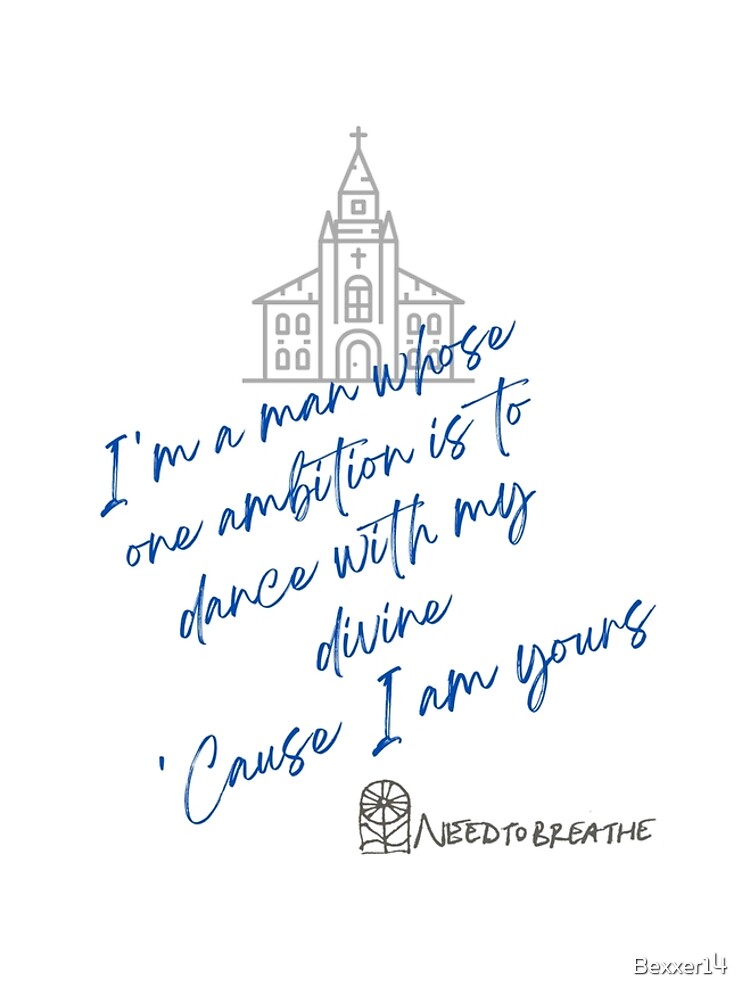 I'm a man whose
one ambition is to
dance with my
divine
'Cause I am yours
NEEDTOBREATHE
Bexxer14